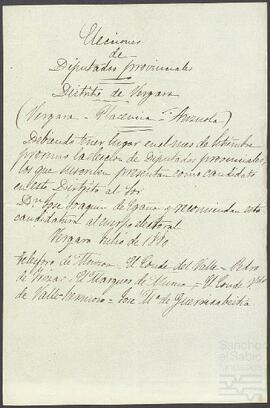 Elecciones
de
Diputados provinciales
Distrito de Vergara
(Vergara - Placencia - Anzuola)
Debiendo tener lugar en el mes de Setiembre
proximo la eleccion de Diputados provinciales,
los que suscriben presentan como candidato
en este Distrito al Sor
Dn José Joaquin de Egaña y recomiendan esta
candidatura al cuerpo electoral
Vergara Julio de 1890
de Monzon = El Conde del Valle = Pedro
de = El Marques de Murua = El Conde
de Valle = José Ma de Guerricabeitia
Sancho
el Sabio